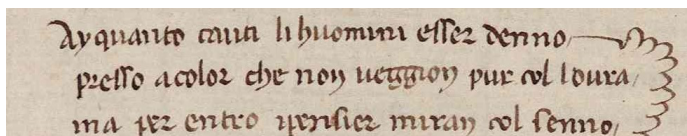 Ay quanto cauti li huomini esser denno
presso a color che non ueggion pur col loura
ma per entro i pensier miran col senno